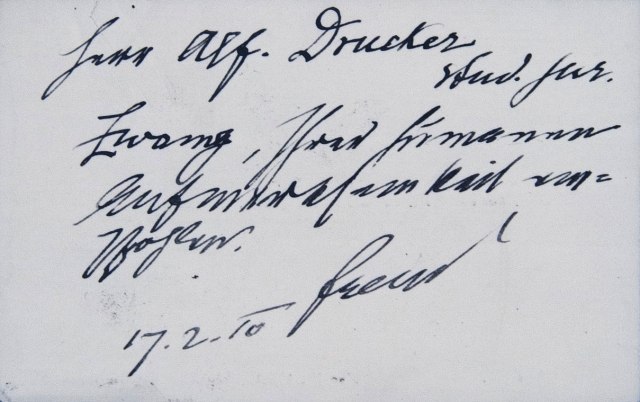 Herr Alf. Drucker
stud. jur.
Zwang, Ihrer humanen
Aufmerksamkeit em=
pfohlen.
Freud
17.2.10